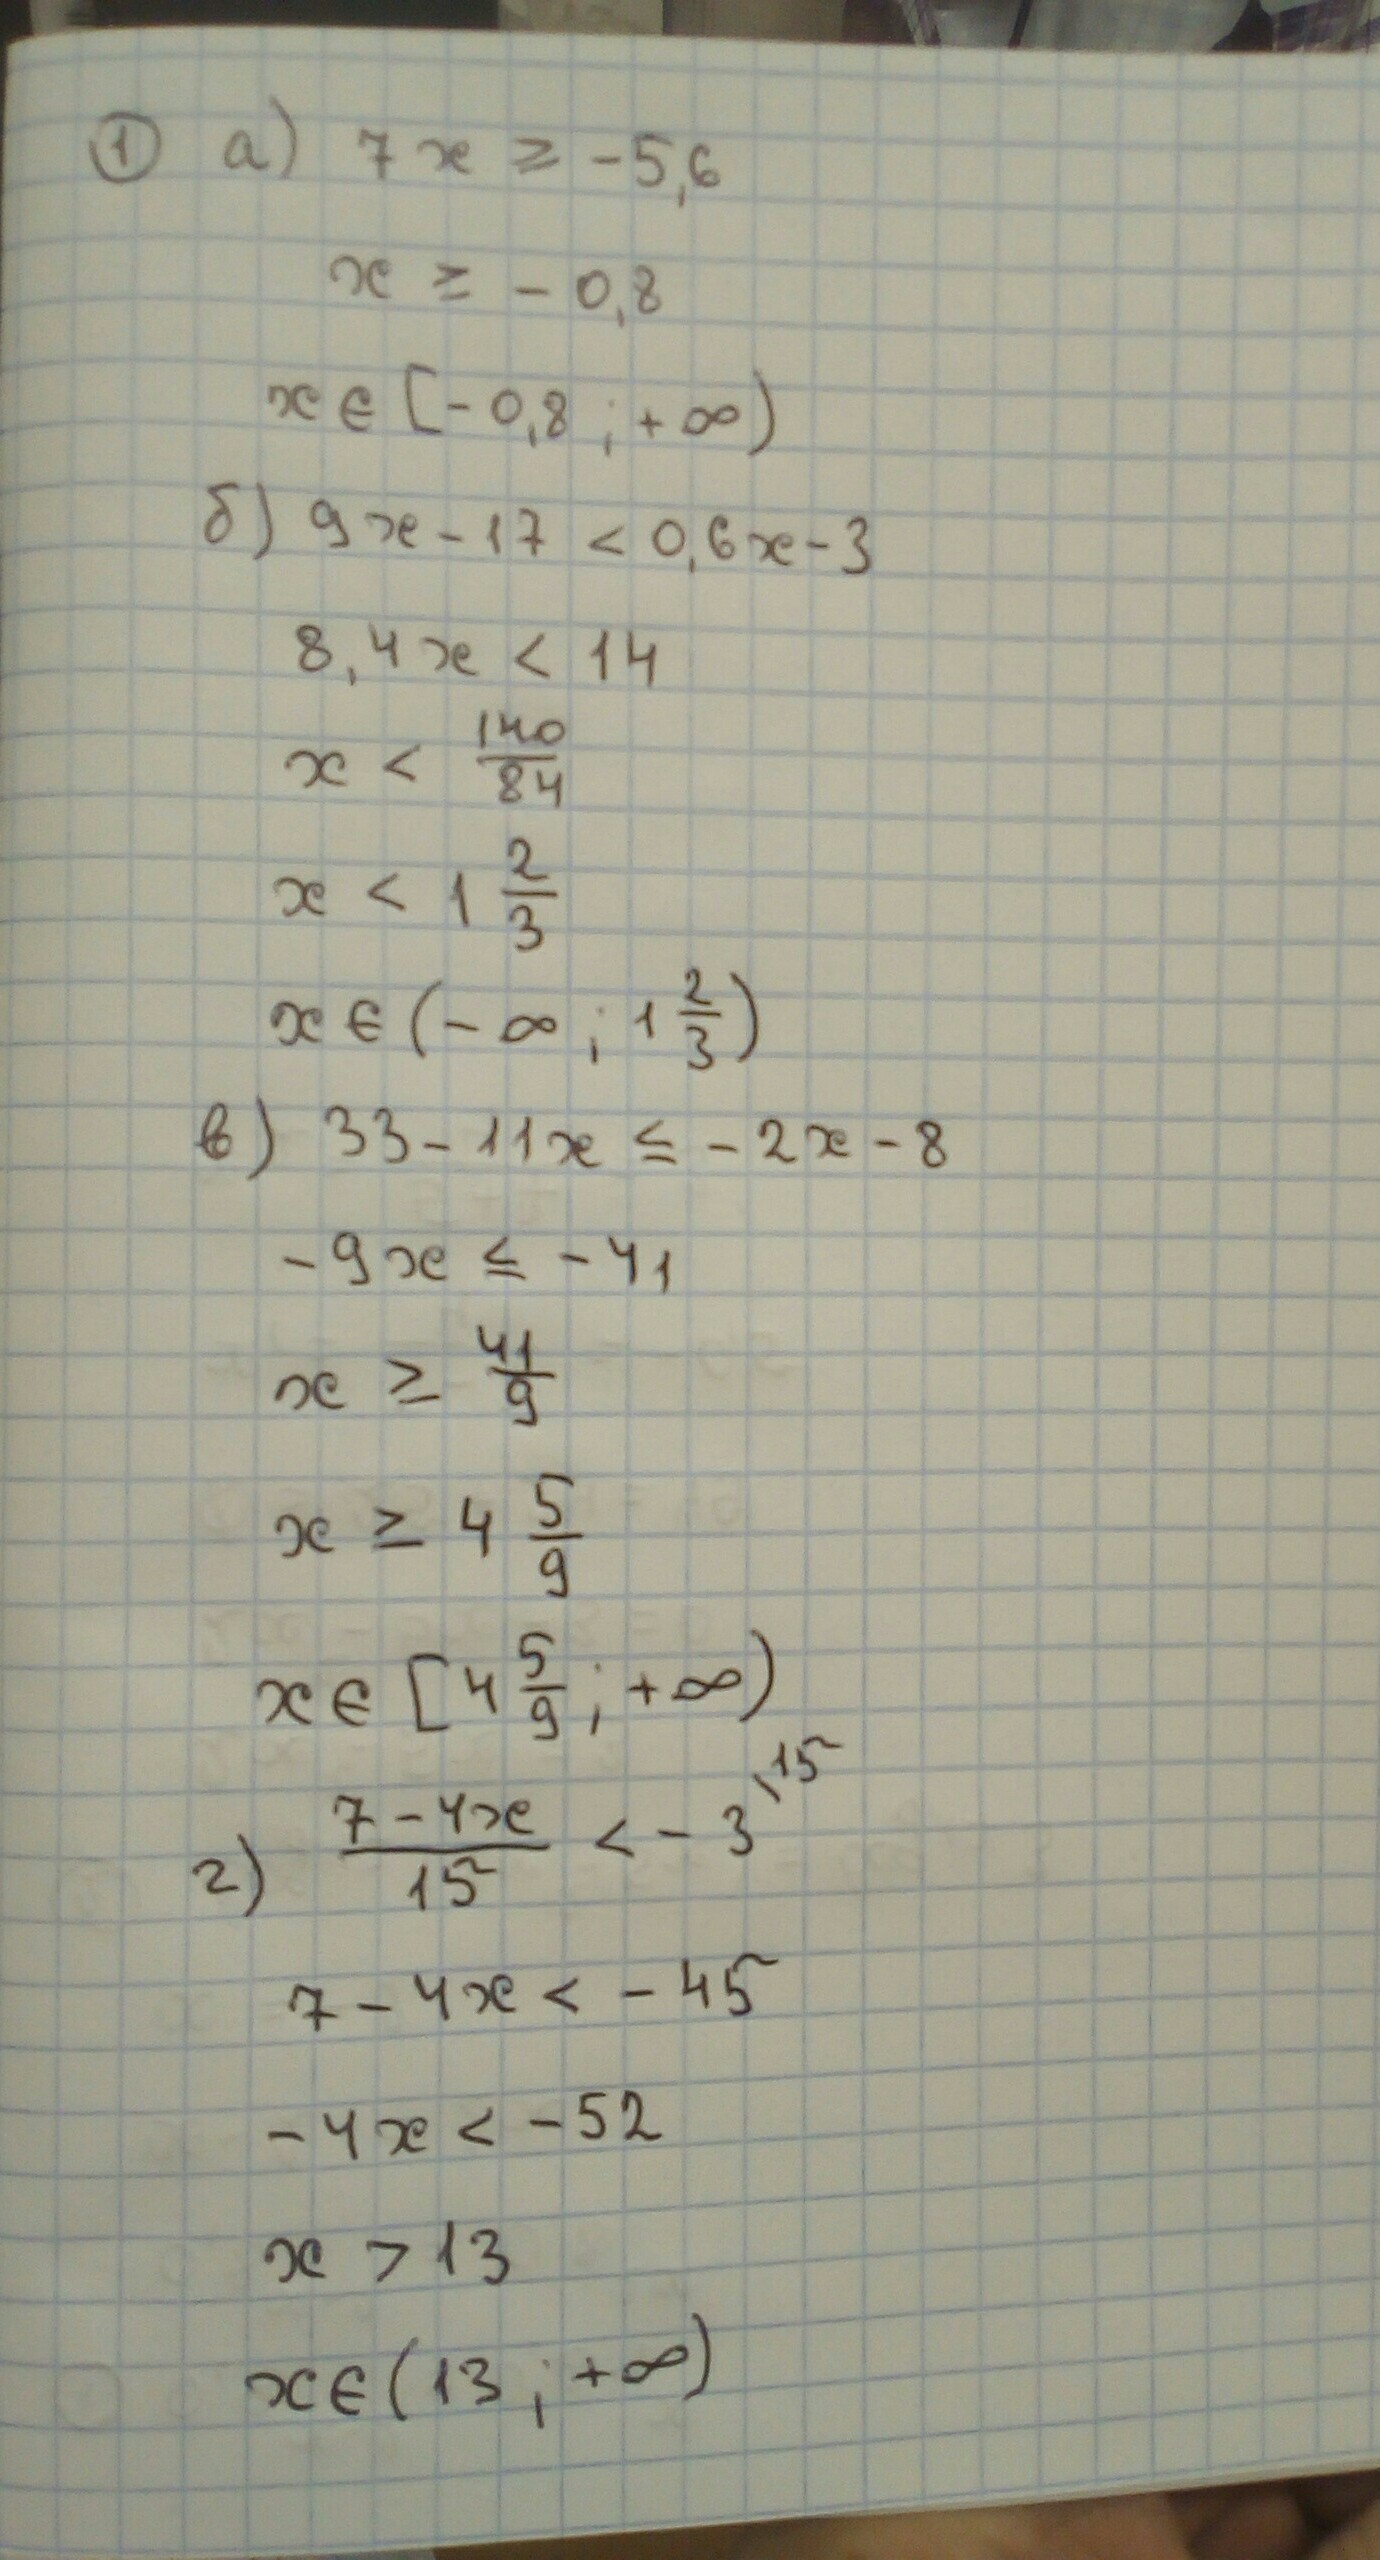 ① а) 7x ≥ -5,6
x ≥ -0,8
x∈[-0,8; +∞)
б) 9x-17 < 0,6x-3
8,4x < 14
x < 140/84
x < 1 2/3
x∈(-∞; 1 2/3)
в) 33-11x ≤ -2x-8
-9x ≤ -41
x ≥ 41/9
x ≥ 4 5/9
x∈[4 5/9; +∞)
г) (7-4x)/15 < -3 \15
7-4x < -45
-4x < -52
x > 13
x∈(13; +∞)